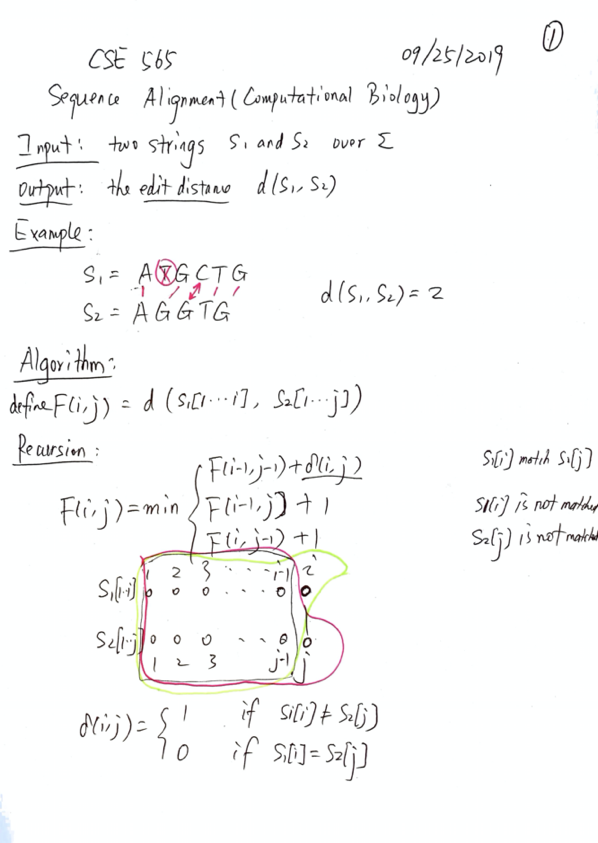 ①
CSE 565 09/25/2019
Sequence Alignment (Computational Biology)
Input: two strings S1 and S2 over Σ
Output: the edit distance d(S1, S2)
Example:
S1 = A T G C T G
S2 = A G G T G
d(S1, S2) = 2
Algorithm:
define F(i,j) = d (S1[1···i], S2[1···j])
Recursion:
F(i,j) = min { F(i-1,j-1) + δ(i,j) S1[i] match S2[j]
F(i-1,j) + 1 S1[i] is not matched
F(i,j-1) + 1 S2[j] is not matched
1 2 3 · · · i-1 i
S1[1··i] 0 0 0 · · 0 0
S2[1··j] 0 0 0 · · 0 0
1 2 3 j-1 j
δ(i,j) = { 1 if S1[i] ≠ S2[j]
0 if S1[i] = S2[j]